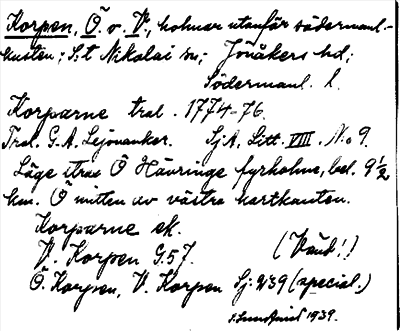 Korpen, Ö o. V., holmar utanför södermanl.-
kusten; S:t Nikolai sn; Jönåkers hd;
Södermanl. l.
Korparne tral. 1774-76.
Tral. G.A. Lejonanker. SjA. Litt. VIII. No 9.
Läge strax Ö Hävringe fyrholme, bel. 9 1/2
km. Ö mitten av västra kartkanten.
Korparne ek.
V. Korpen G.57. (Vänd!)
Ö. Korpen, V. Korpen Sj: 239 (special.)
1939.